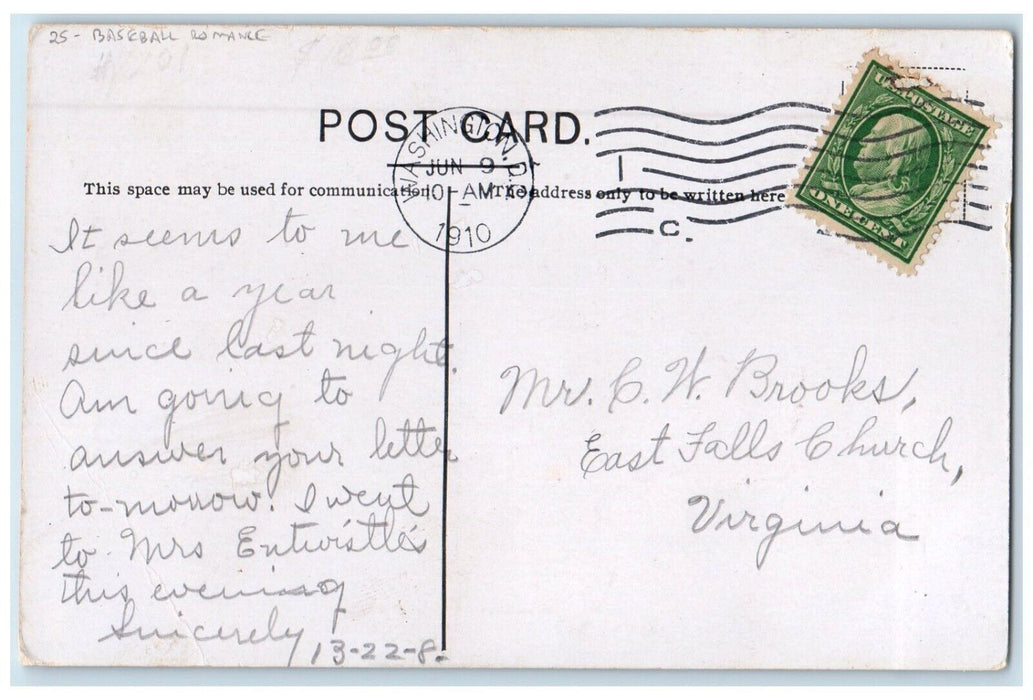 25- BASEBALL ROMANCE
POST CARD.
WASHINGTON, D.
JUN 9
10-AM
1910
1
C.
U.S. POSTAGE
ONE CENT
This space may be used for communication.
The address only to be written here
It seems to me
like a year
since last night.
Am going to
answer your letter
to-morrow. I went
to Mrs Entwistle's
this evening
Sincerely
13-22-8.
Mr. C. W. Brooks,
East Falls Church,
Virginia